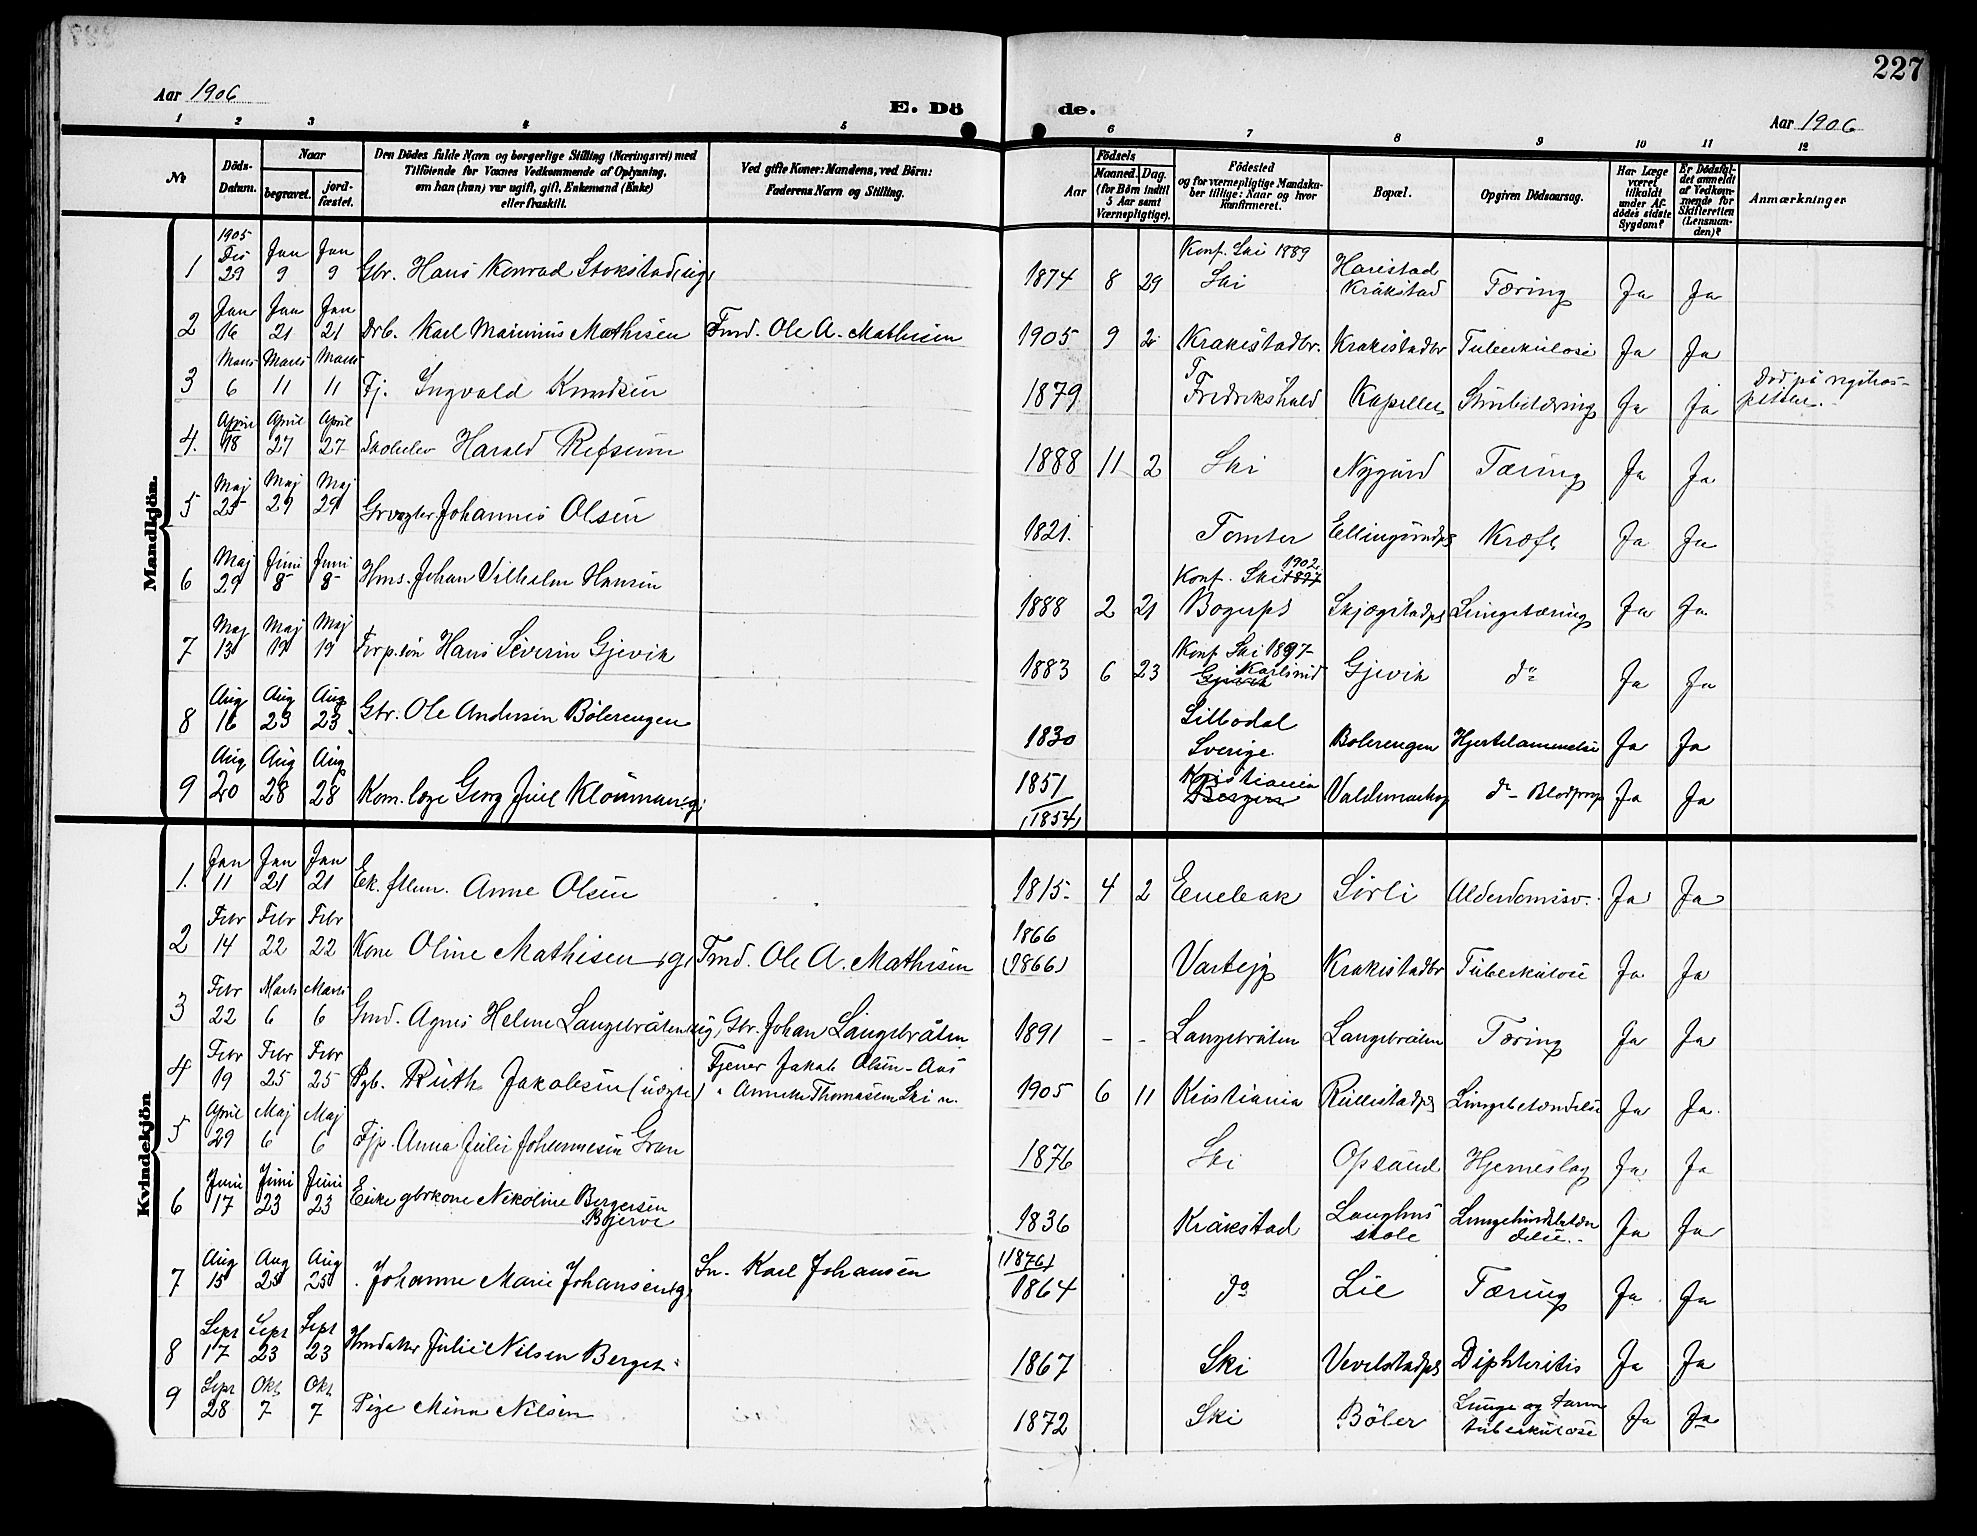 227
Aar 1906
E. Dö de.
Aar 1906
1 2 3 4 5 6 7 8 9 10 11 12
No
Döds-Datum.
Naar
begravet.
jord-fæstet.
Den Dödes fulde Navn og borgerlige Stilling (Næringsvei) med
Tilföiende for Voxnes Vedkommende af Oplysning,
om han (hun) var ugift, gift, Enkemand (Enke)
eller fraskilt.
Ved gifte Koner: Mandens, ved Börn:
Faderens Navn og Stilling.
Födsels
Aar
Maaned. Dag.
(for Börn indtil
5 Aar samt
Værnepligtige).
Födested
og for værnepligtige Mandska-
ber tillige: Naar og hvor
konfirmeret.
Bopæl.
Opgiven Dödsaarsag.
Har Læge
været
tilkaldt
under Af-
dödes sidste
Sygdom?
Er Dödsfal-
det anmeldt
af Vedkom-
mende for
Skifteretten
(Lensman-
den)?
Anmærkninger
Mandkjön.
1 1905 Des 29 Jan 9 Jan 9 Gbr. Hans Konrad Stokstad (ug) 1874 8 29 Konf. Ski 1889 Ski Harestad Kråkstad Tæring Ja Ja
2 Jan 16 Jan 21 Jan 21 Drb. Karl Marinius Mathisen Fmd. Ole A. Mathisen 1905 9 2 Krakistadbr. Krakistadbr Tuberkulose Ja Ja
3 Marts 6 Marts 11 Marts 11 Fj. Ingvald Knudsen 1879 Fredrikshald Kapellet Ja Ja Död på rigshos-
pitalet.
4. April 18 April 27 April 27 Skoleelev Harald Refsum 1888 11 2 Ski Nygård Tæring Ja Ja
5 Maj 25 Maj 29 Maj 29 Johannes Olsen 1821. Tomter Kræft Ja Ja
6 Maj 29 Juni 8 Juni 8 Hms. Johan Vilhelm Hansen 1888 2 21 Konf. Ski 1902 1897 Skjægstadpl Lungetæring Ja Ja
7 Maj 13 Maj 19 Maj 19 Forp.søn Hans Severin Gjevik 1883 6 23 Konf Ski 1897 Gjevik Gjevik do Ja Ja
8 Aug 16 Aug 23 Aug 23 Gbr. Ole Andersen Bölerengen 1830 Sillbodal Sverige Bolerengen Hjertelammelse Ja Ja
9 Aug 20 Aug 28 Aug 28 Kom. læge Georg Juel Kloumann (g) 1851 (1854) Kristiania Bergen Valdemarhøj do - Blodprop Ja Ja
Kvindekjön
1. Jan 11 Jan 21 Jan 21 Ek. Anne Olsen 1815 4 2 Enebak Sörli Alderdomssv. Ja Ja
2 Febr 14 Febr 22 Febr 22 Kone Oline Mathisen (g) Fmd. Ole A. Mathisen 1866 (1866) Varteig Krakistadbr Tuberkulose Ja Ja
3 Febr 22 Marts 6 Marts 6 Gmd. Agnes Helene Langebråten (ug) Gbr. Johan Langebråten 1891 - - Langebråten Langebråten Tæring Ja Ja
4 Febr 19 Febr 25 Febr 25 Pgb. Ruth Jakobsen (uægte) Tjener Jakob Olsen - Aas
" Annette Thomasen Ski 1905 6 11 Kristiania Rullestadpl Lungebetændelse Ja Ja.
5 April 29 Maj 6 Maj 6 Fjp. Anna Julie Johannesen Gran 1876 Ski Opsand Hjerneslag Ja Ja
6 Juni 17 Juni 23 Juni 23 Enke gbrkone Nikoline Bergersen
Bjerve 1836 Kråkstad Langhus skole Ja Ja
7 Aug 15 Aug 25 Aug 25 Johanne Marie Johansen (g) Sn. Karl Johansen (1876) 1864 do Lie Tæring Ja Ja
8 Sept 17 Sept 23 Sept 23 Hmdatter Julie Nilsen Berget 1867 Ski Vevelstadpl Diphteritis Ja Ja
9 Sept 28 Okt 7 Okt 7 Pige Mina Nilsen 1872 Ski Böler Lunge og Tarm
tuberkulose Ja Ja